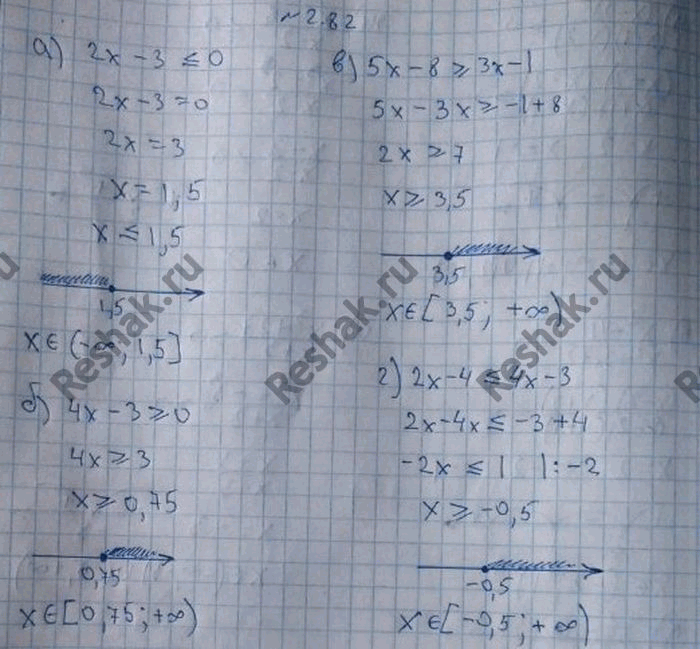 №2.82
а) 2x - 3 ≤ 0
2x - 3 = 0
2x = 3
x = 1,5
x ≤ 1,5
1,5
x ∈ (-∞; 1,5]
б) 4x - 3 ≥ 0
4x ≥ 3
x ≥ 0,75
0,75
x ∈ [0,75; +∞)
в) 5x - 8 ≥ 3x - 1
5x - 3x ≥ -1 + 8
2x ≥ 7
x ≥ 3,5
3,5
x ∈ [3,5; +∞)
г) 2x - 4 ≤ 4x - 3
2x - 4x ≤ -3 + 4
-2x ≤ 1 |: -2
x ≥ -0,5
-0,5
x ∈ [-0,5; +∞)
Reshak.ru
Reshak.ru
Reshak.ru